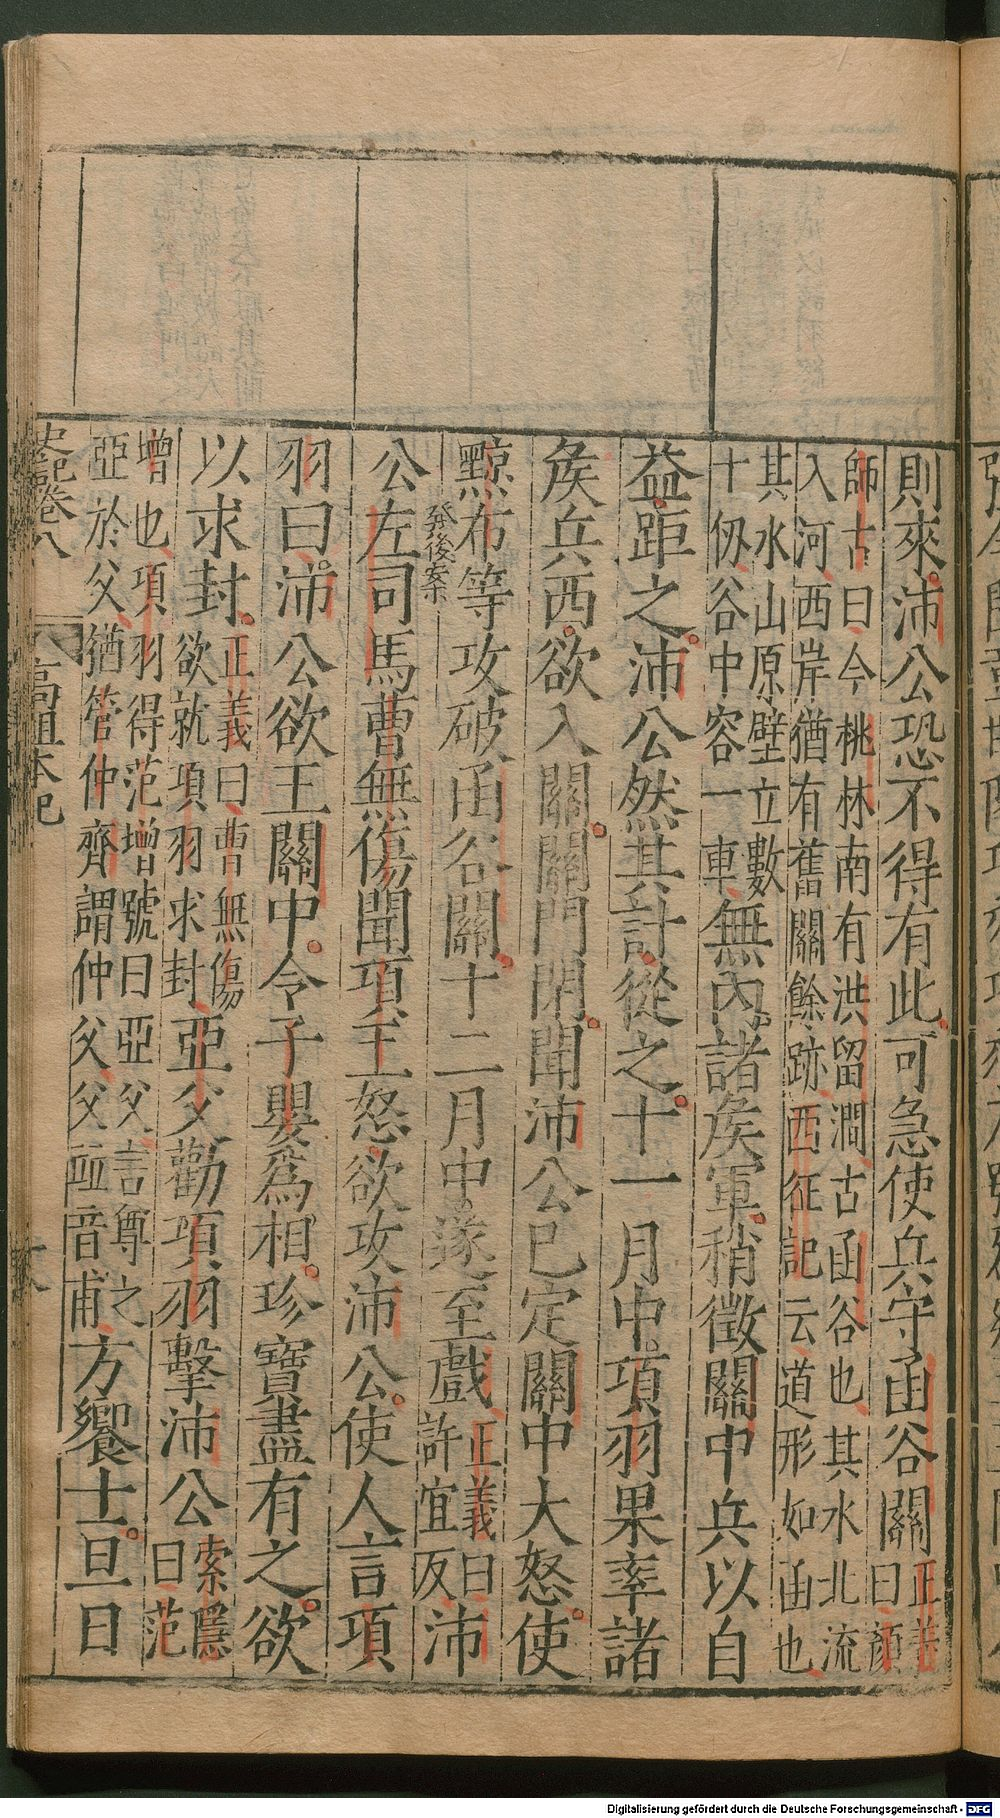 則來沛公恐不得有此可急使兵守函谷關正義曰顏
師古曰今桃林南有洪留澗古函谷也其水北流
入河西岸猶有舊關餘跡西征記云道形如函也
其水山原壁立數
十仭谷中容一車無內諸矦軍稍徵關中兵以自
益距之沛公然其計從之十一月中項羽果率諸
矦兵西欲入關關門閉聞沛公已定關中大怒使
黥布等攻破函谷關十二月中遂至戲正義曰許宜反沛
發後案
公左司馬曹無傷聞項王怒欲攻沛公使人言項
羽曰沛公欲王關中令子嬰爲相珍寶盡有之欲
以求封正義曰曹無傷欲就項羽求封亞父勸項羽擊沛公索隱曰范
增也項羽得范增號曰亞父言尊之
亞於父猶管仲齊謂仲父父並音甫方饗士旦日
史記卷八
八
高祖本紀
Digitalisierung gefördert durch die Deutsche Forschungsgemeinschaft - DFG